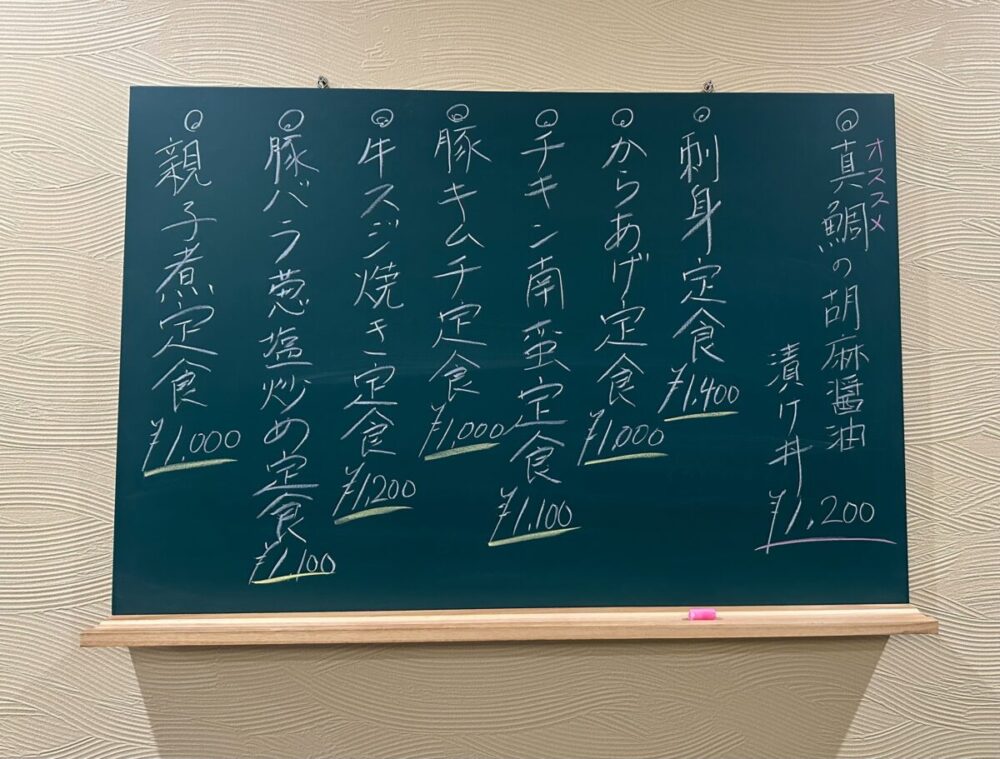 オススメ
◎真鯛の胡麻醤油
漬け丼
¥1,200
◎刺身定食
¥1,400
◎からあげ定食
¥1,000
◎チキン南蛮定食
¥1,100
◎豚キムチ定食
¥1,000
◎牛スジ焼き定食
¥1,200
◎豚バラ葱塩炒め定食
¥1,100
◎親子煮定食
¥1,000